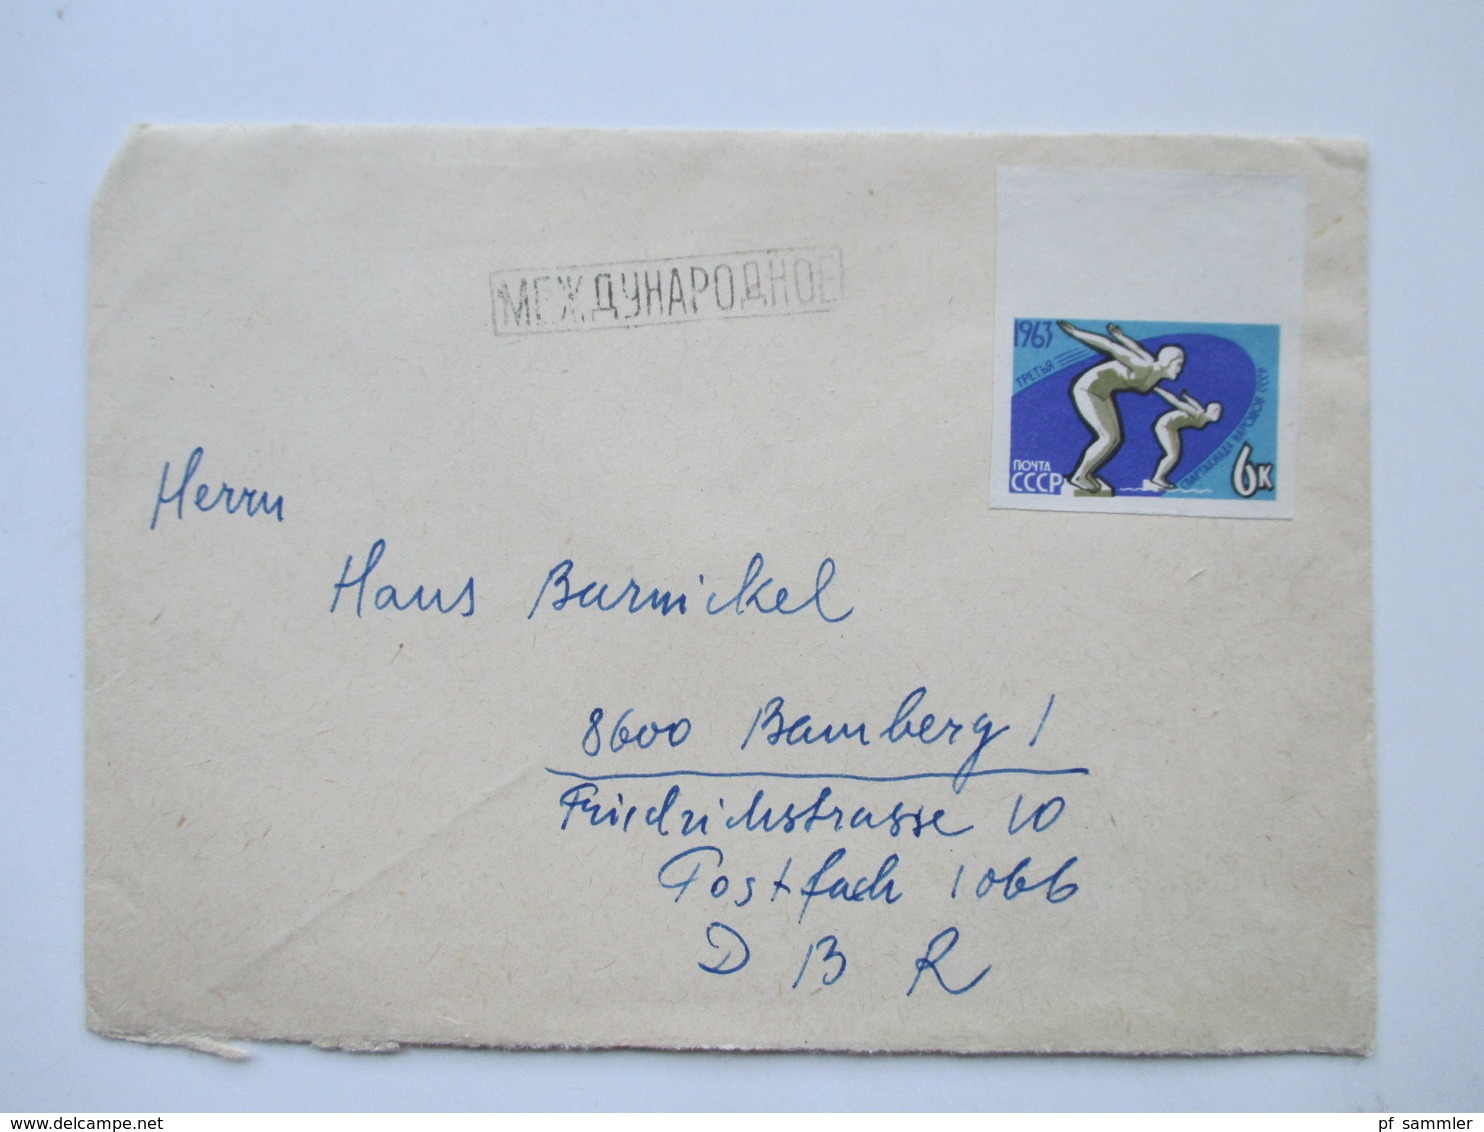 МЕЖДУНАРОДНОЕ
1963
ТРЕТЬЯ
СПАРТАКИАДА НАРОДОВ СССР
ПОЧТА
СССР
6к
Herrn
Hans Barnickel
8600 Bamberg 1
Friedrichstrasse 10
Postfach 1066
D B R
www.delcampe.net
pf_sammler